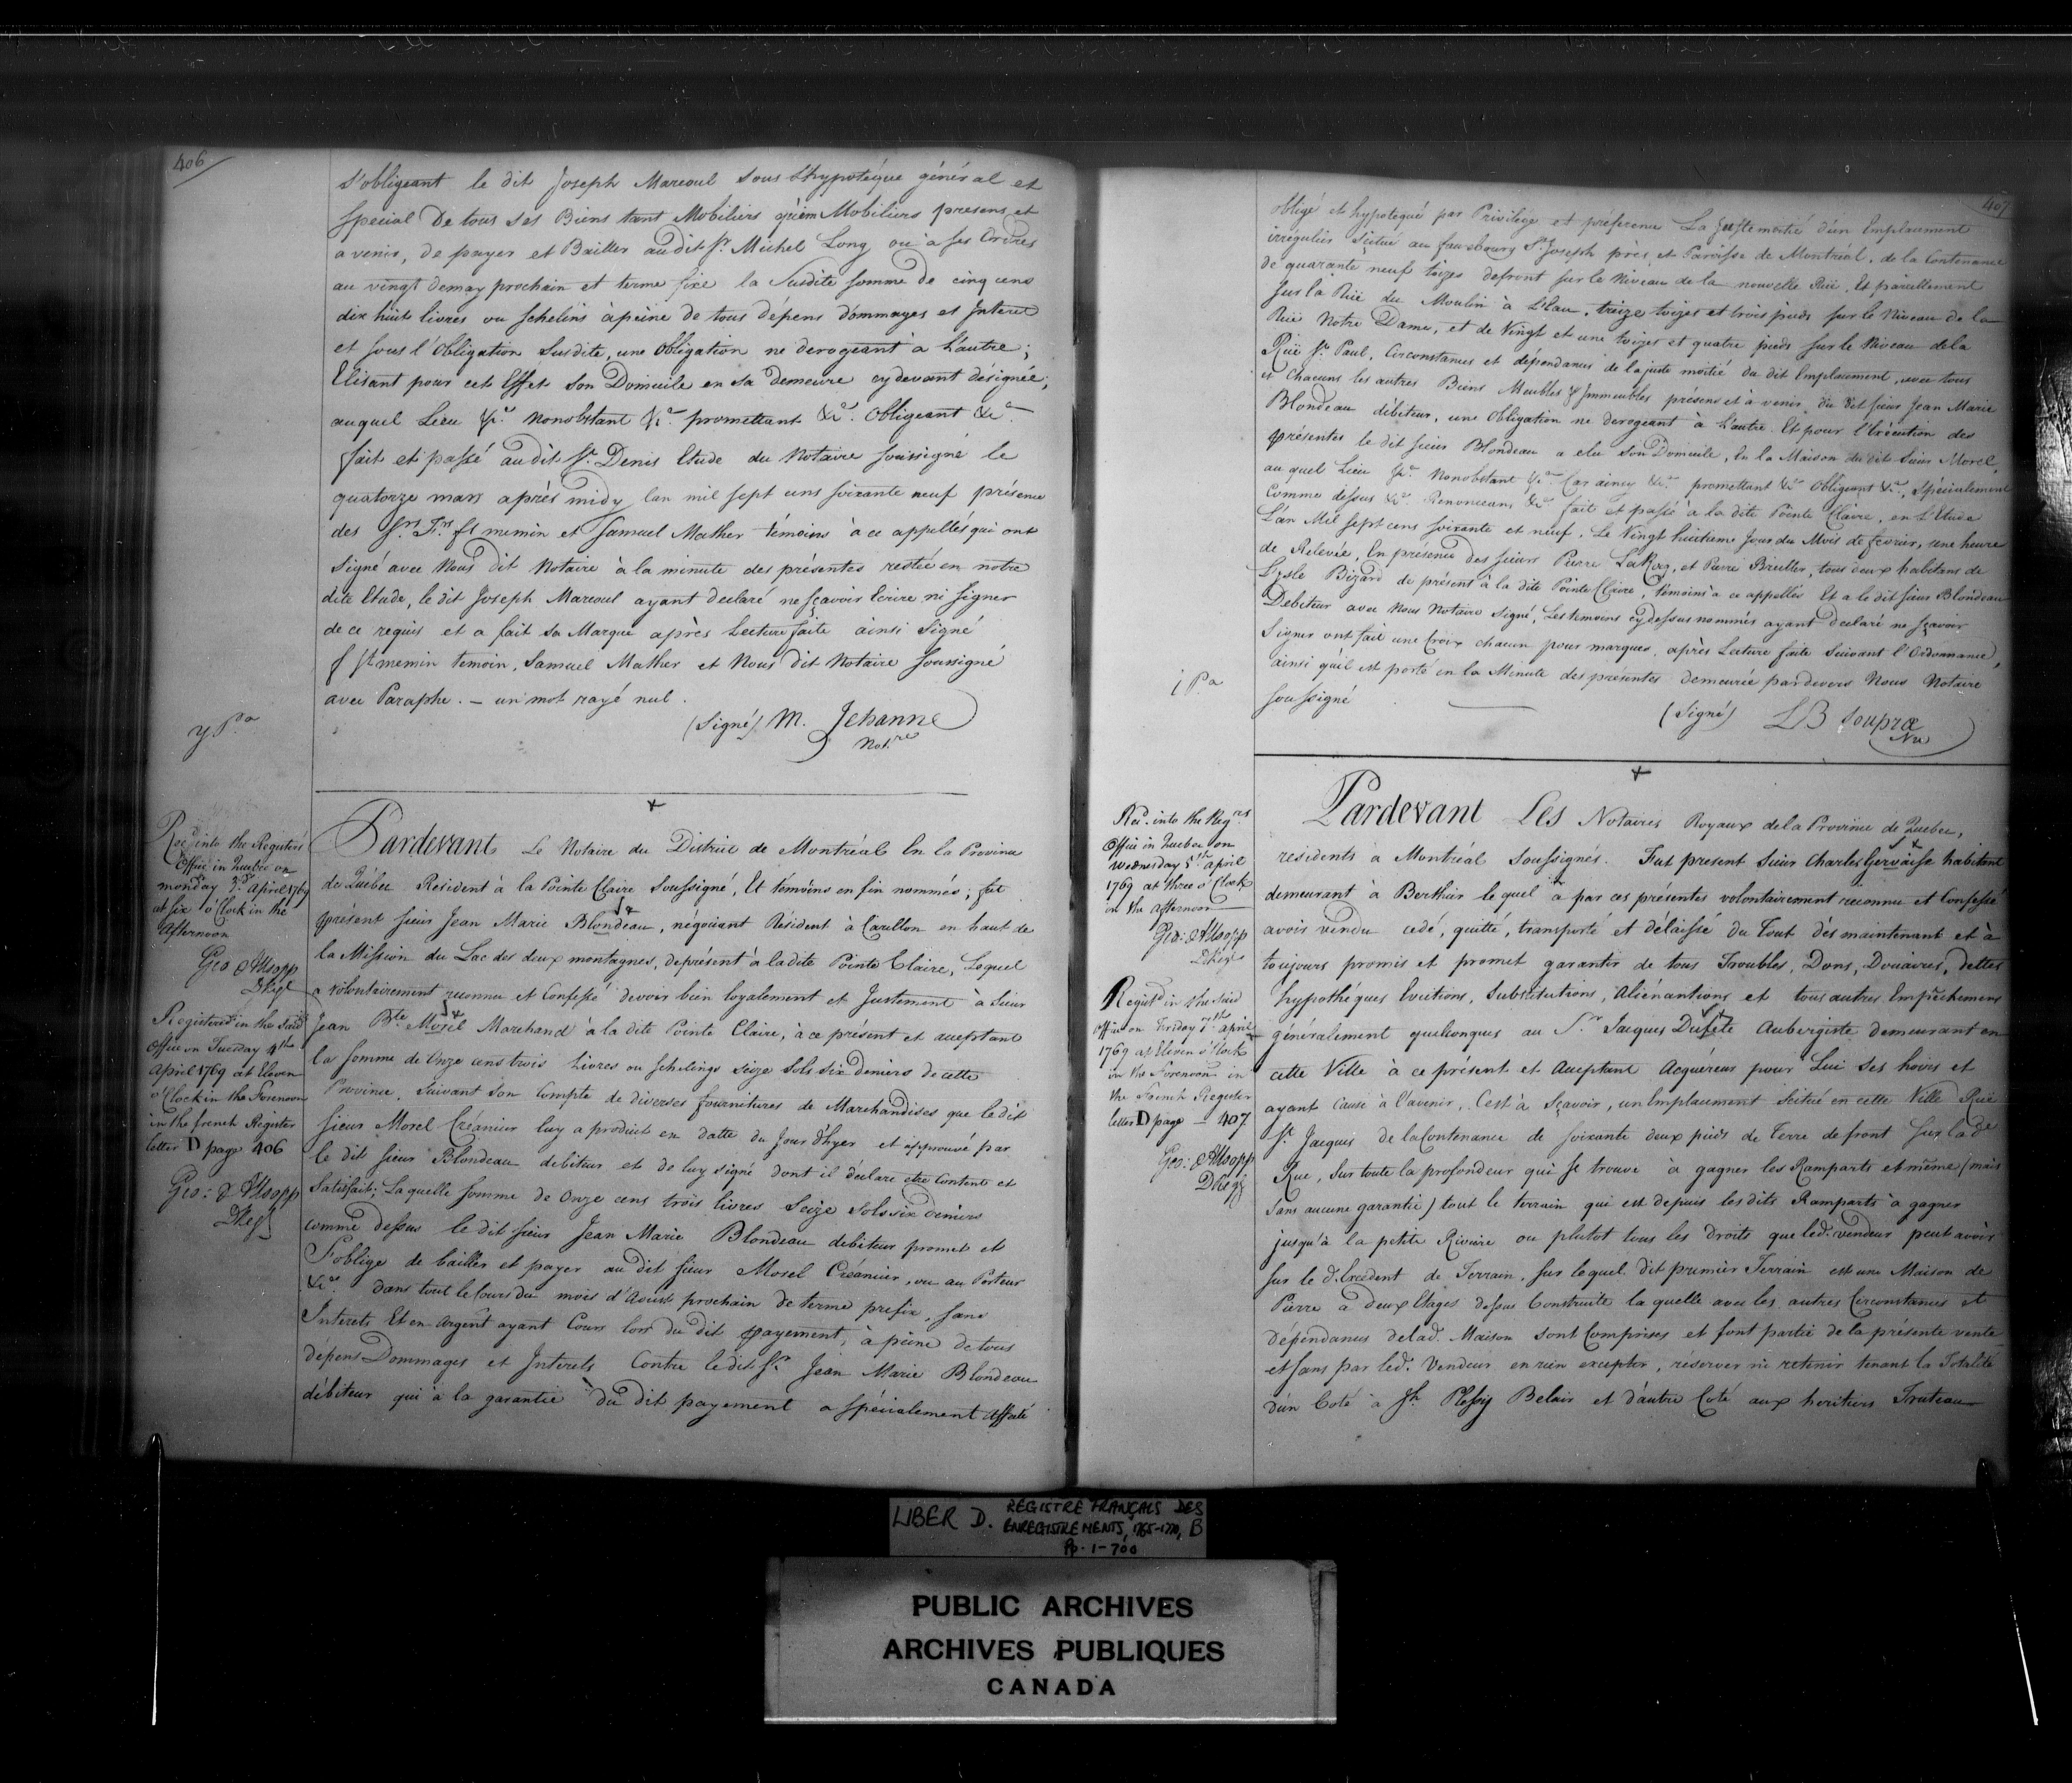 406
s'obligeant le dit Joseph Mareoul sous L'hypotéque général et
spécial De tous ses Biens tant Mobiliers qu'im Mobiliers presens et
avenir, de payer et Bailler audit Sr. Michel Long ou à ses Ordres
au vingt demay prochain et terme fixe la Susdite somme de cinq cens
dix huit livres ou schelins à peine de tous dépens dommages et Interet
et sous l'Obligation Susdite, une Obligation ne derogeant a L'autre;
Elisant pour cet Effet son Domicile en sa demeure cydevant désignée,
auquel Lieu &ca. nonobstant &ca. promettant &ca. Obligeant &ca.
fait et passé audit St. Denis Etude du Notaire soussigné le
quatorze mars après midy lan mil sept cens soixante neuf présence
des Srs. Frs. St memin et Samuel Mather témoins à ce appellés qui ont
Signé avec Nous dit Notaire à la minute des présentes restée en notre
dite Etude, le dit Joseph Mareoul ayant declaré ne sçavoir Ecrire ni signer
de ce requis et a fait sa Marque après Lecture faite ainsi Signé
f St memin temoin, Samuel Mather et Nous dit Notaire soussigné
avec Paraphe. — un mot rayé nul.
(Signé) M. Jehanne
Notre
y Pa
Recd into the Registers
Office in Quebec on
monday 3d. April 1769
at six o'Clock in the
Afternoon
Geo Allsopp
DReg
Registered in the said
Office on Tuesday 4th
April 1769 at Eleven
o'Clock in the Forenoon
in the french Register
letter D page 406
Geo: Allsopp
DReg
Pardevant Le Notaire du District de Montréal En la Province
de Québec Resident à la Pointe Claire Soussigné, Et témoins en fin nommés; fut
présent sieur Jean Marie Blondeau, négociant Résident à Carillon en haut de
la Mission du Lac des deux montagnes, deprésent à ladite Pointe Claire, Lequel
a volontairement reconnu et Confessé devoir bien loyalement et Justement à Sieur
Jean Bte Morel Marchand à la dite Pointe Claire, à ce présent et acceptant
la somme de Onze cens trois Livres ou schelings seize sols six deniers de cette
Province, suivant son Compte de diverses fournitures de Marchandises que le dit
sieur Morel Créancier luy a produit en datte du Jour d'hyer et approuvé par
le dit sieur Blondeau debiteur et de luy signé dont il déclare etre Content et
Satisfait; Laquelle somme de Onze cens trois livres Seize Sols six deniers
comme dessus le dit sieur Jean Marie Blondeau debiteur promet et
s'oblige de bailler et payer au dit sieur Morel Créancier, ou au Porteur
&ca. dans tout le Cours du mois d'Aoust prochain de terme prefix, sans
Interets Et en Argent ayant Cours lors du dit payement, à peine de tous
dépens Dommages et Interets Contre ledit Sr. Jean Marie Blondeau
débiteur qui à la garantie du dit payement a spécialement affecté
407
obligé et hypotequé par Privilége et préference La juste moitié d'un Emplacement
irrégulier Scitué au fauxbourg St. Joseph près et Paroisse de Montréal, de la Contenance
de quarante neuf toizes defront sur le Niveau de la nouvelle Rüe, Et pareillement
sur la Rüe du Moulin à L'Eau, treize toizes et trois pieds sur le Niveau de la
Rüe Notre Dame, et de Vingt et une toizes et quatre pieds sur le Niveau dela
Rüe St. Paul, Circonstances et dépendances de la juste moitié du dit Emplacement, avec tous
et Chacuns les autres Biens Meubles & Immeubles présens et à venir du dit sieur Jean Marie
Blondeau débiteur, une Obligation ne derogeant à L'autre. Et pour l'Exécution des
présentes le dit sieur Blondeau a elu son Domicile, En la Maison du dit Sieur Morel,
au quel Lieu &ca. Nonobstant &ca. Car ainsy &ca. promettant &ca Obligeant &ca. Spécialement
Comme dessus &ca. Renonceant &ca fait et passé à la dite Pointe Claire, en L'Etude
L'an Mil sept cens soixante et neuf, Le Vingt huitieme Jour du Mois de fevrier, une heure
de Relevée, En présence des sieurs Pierre LaRoy, et Pierre Brillen, tous deux habitans de
L'ysle Bizard de présent à la dite Pointe Claire, témoins a ce appellés Et a le dit sieur Blondeau
Debiteur avec Nous Notaire Signé, Les temoins cydessus nommés ayant declaré ne sçavoir
Signer ont fait une Croix chacun pour marques, après Lecture faite Suivant l'Ordonnance,
ainsi qu'il est porté en la Minute des présentes demeurée pardevers Nous Notaire
soussigné
(Signé) LB Souprae
Nre
i Pa
Recd. into the Regrs
Office in Quebec on
Wednesday 5th April
1769 at three o'Clock
in the afternoon
Geo: Allsopp
DReg
Registd in the said
Office on Friday 7th April
1769 at Eleven o'Clock
in the Forenoon in
the French Register
letter D page 407
Geo: Allsopp
DReg
Pardevant Les Notaires Royaux de la Province de Quebec,
résidents à Montréal Soussignés. Fut present Sieur Charles Gervaise habitant
demeurant à Berthier lequel a par ces présentes volontairement reconnu et Confessé
avoir vendu cedé, quitté, transporté et délaissé du Tout dès maintenant et à
toujours promis et promet garantir de tous Troubles, Dons, Douaires, dettes
hypothéques Evictions, Substitutions, Aliénantions et tous autres Empêchemens
généralement quelconques au Sr Jacques Dusete Aubergiste demeurant en
cette Ville à ce présent et Acceptant Acquéreur pour Lui ses hoirs et
ayant cause à l'avenir, C'est à Sçavoir, un Emplacement Scitué en cette Ville Rue
St. Jacques de la Contenance de soixante deux pieds de Terre de front sur lade
Rue, sur toute la profondeur qui se trouve à gagner les Ramparts et même (mais
sans aucune garantie) tout le terrain qui est depuis les dits Ramparts à gagner
jusqu'à la petite Riviere ou plutot tous les Droits que led. vendeur peut avoir
sur le d. Excedent de Terrain, sur lequel dit premier Terrain est une Maison de
Pierre à deux Etages dessus Construite la quelle avec les autres Circonstances et
Dépendances de lad. Maison sont Comprises et font partie de la présente vente
et sans par led. Vendeur en rien excepter, réserver ni retenir tenant la Totalité
d'un Coté à Jh Plessy Belair et d'autre Coté aux heritiers Truteau
LIBER D. REGISTRE FRANÇAIS DES
ENREGISTREMENTS, 1765-1770, B
Pp. 1-700
PUBLIC ARCHIVES
ARCHIVES PUBLIQUES
CANADA